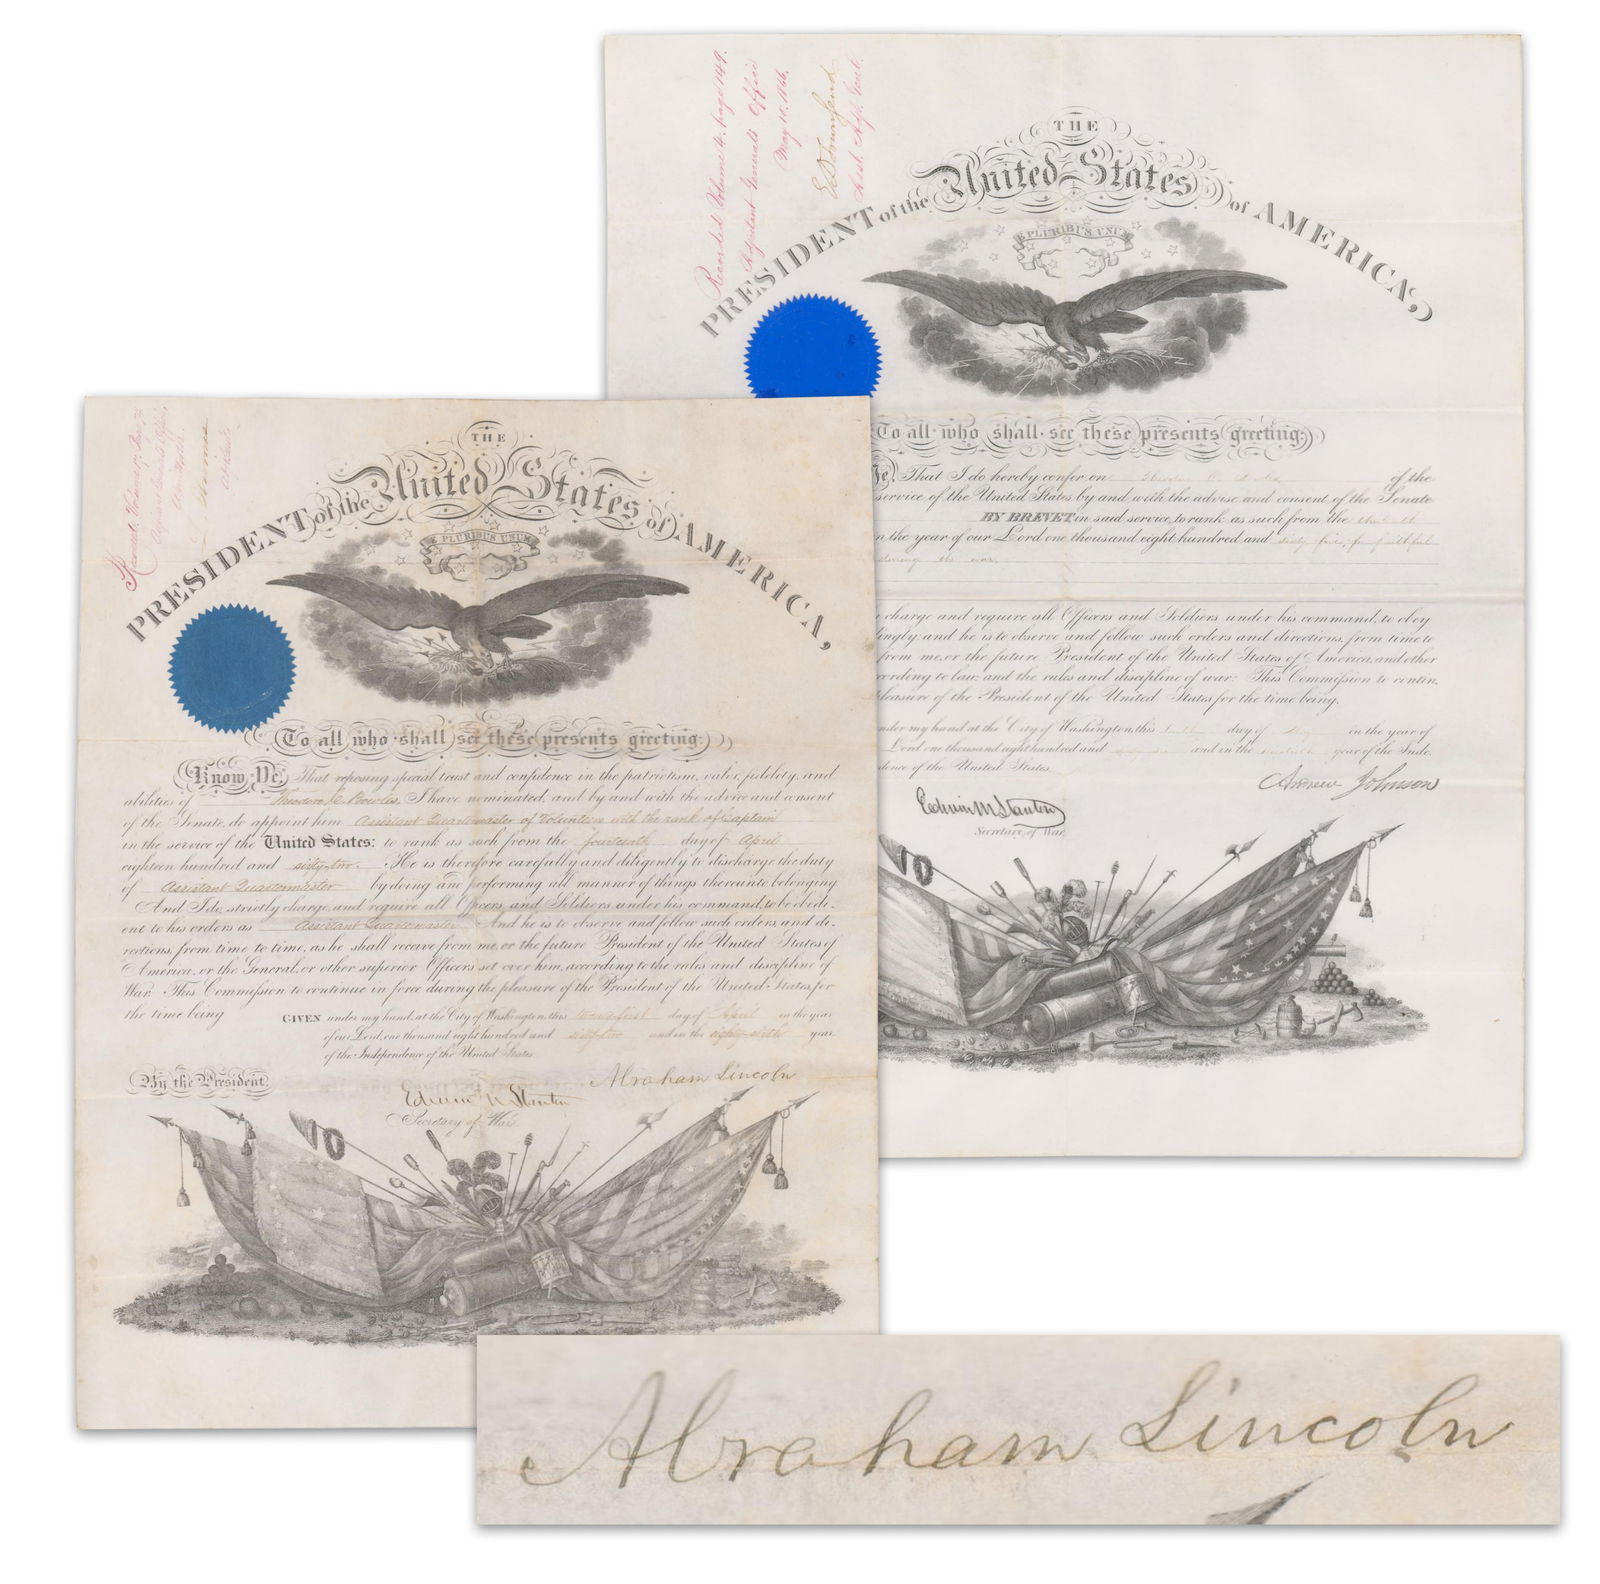 Recorded Volume 4, Page 149.
Adjutant Generals Office
May 10, 1866.
E D Townsend
Asst. Adjt. Genl.
THE
PRESIDENT of the United States of AMERICA,
E PLURIBUS UNUM
To all who shall see these presents greeting:
That I do hereby confer on of the
service of the United States by and with the advise and consent of the Senate
BY BREVET in said service, to rank as such from the thirteenth
in the year of our Lord one thousand eight hundred and sixty five, for faithful
during the war.
charge and require all Officers and Soldiers under his command, to obey
and he is to observe and follow such orders and directions, from time to
from me, or the future President of the United States of America, and other
according to law; and the rules and discipline of war: This Commission to contin-
pleasure of the President of the United States for the time being.
under my hand at the City of Washington, this day of May in the year of
Lord one thousand eight hundred and and in the year of the Inde-
of the United States.
Andrew Johnson
Edwin M Stanton
Secretary of War.
THE
PRESIDENT of the United States of AMERICA,
E PLURIBUS UNUM
To all who shall see these presents greeting:
Know Ye, That reposing special trust and confidence in the patriotism, valor, fidelity, and
abilities of Theodore C. Bowles, I have nominated, and by and with the advice and consent
of the Senate, do appoint him Assistant Quartermaster of Volunteers with the rank of Captain
in the service of the United States: to rank as such from the fourteenth day of April
eighteen hundred and sixty-two. He is therefore carefully and diligently to discharge the duty
of Assistant Quartermaster by doing and performing all manner of things thereunto belonging.
And I do, strictly charge, and require all Officers and Soldiers under his command, to be obedi-
ent to his orders as Assistant Quartermaster And he is to observe and follow such orders, and di-
rections, from time to time, as he shall receive from me, or the future President of the United States of
America, or the General, or other superior Officers set over him, according to the rules and discipline of
War. This Commission to continue in force during the pleasure of the President of the United States, for
the time being
GIVEN under my hand, at the City of Washington, this twenty-first day of April in the year
of our Lord, one thousand eight hundred and sixty-two and in the eighty-sixth year
of the Independence of the United States
By the President, Abraham Lincoln
Edwin M Stanton
Secretary of War.
Abraham Lincoln